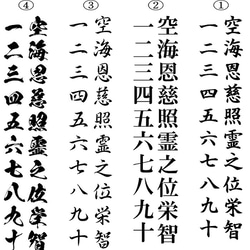 ①
空海恩慈照霊之位栄智
一二三四五六七八九十
②
空海恩慈照霊之位栄智
一二三四五六七八九十
③
空海恩慈照霊之位栄智
一二三四五六七八九十
④
空海恩慈照霊之位栄智
一二三四五六七八九十